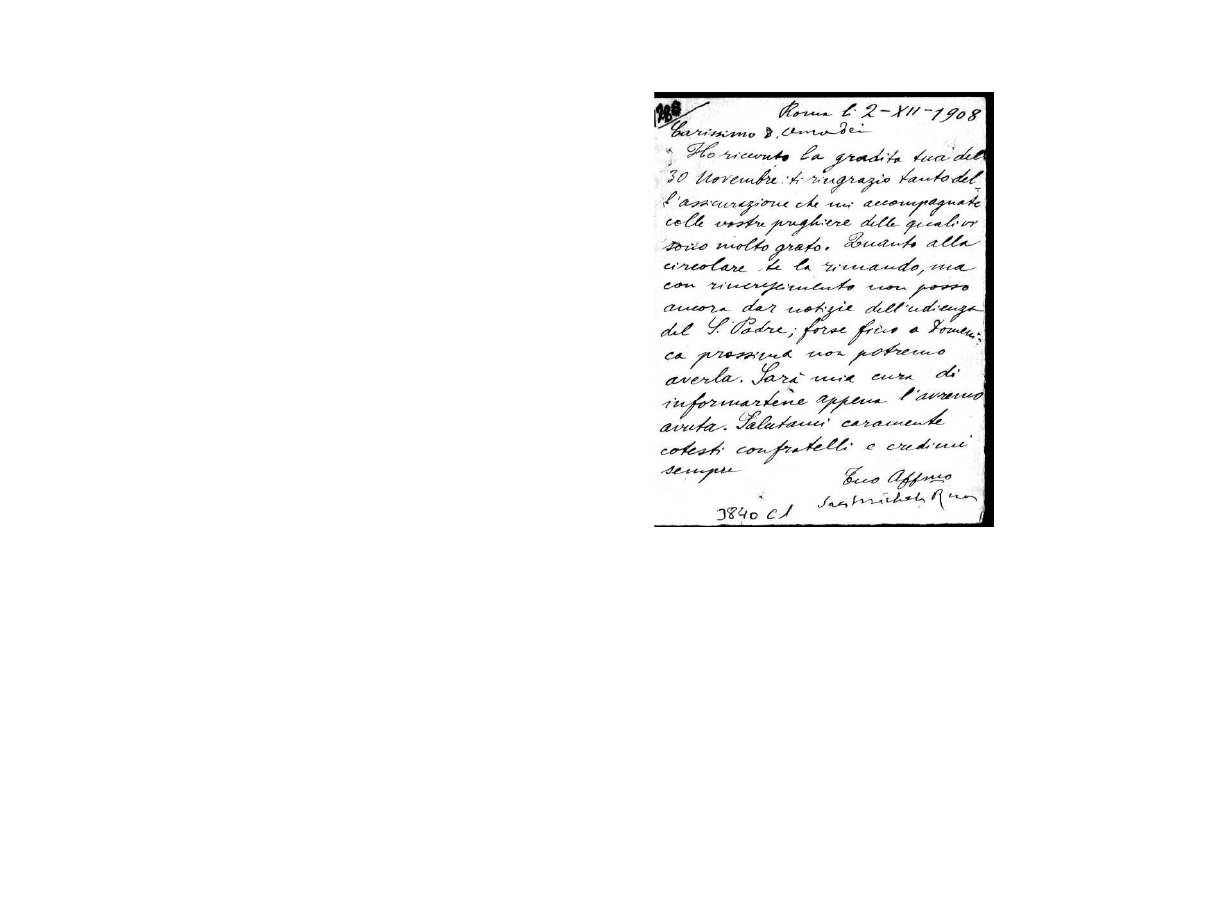 288
Roma li 2-XII-1908
Carissimo D. Amadei
Ho ricevuto la gradita tua del
30 Novembre: ti ringrazio tanto del=
l'assicurazione che mi accompagnate
colle vostre preghiere delle quali vi
sono molto grato. Quanto alla
circolare te la rimando, ma
con rincrescimento non posso
ancora dar notizie dell'udienza
del S. Padre; forse fino a Domeni=
ca prossima non potremo
averla. Sarà mia cura di
informartene appena l'avremo
avuta. Salutami caramente
cotesti confratelli e credimi
sempre
Tuo Affmo
Sac. Michele Rua
3840 C1